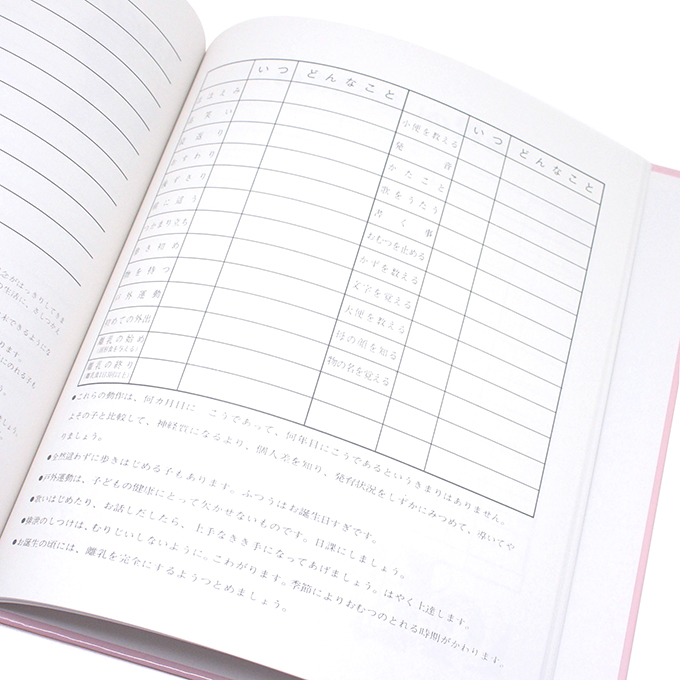 念がはっきりしてきま
の生活に、さしつかえ
できるようにな
ります。
にのれる子も
ます。
いつ
どんなこと
寝返り
おすわり
つかまり立ち
歩き初め
物を持つ
戸外運動
初めての外出
離乳の始め
離乳の終り
いつ
どんなこと
小便を教える
発音
かたこと
歌をうたう
書く事
おむつを止める
かずを数える
文字を覚える
大便を教える
母の顔を知る
物の名を覚える
●これらの動作は、何カ月目に こうであって、何年目にこうであるというきまりはありません。
よその子と比較して、神経質になるより、個人差を知り、発育状況をしずかにみつめて、導いてや
りましょう。
●全然這わずに歩きはじめる子もあります。ふつうはお誕生日すぎです。
●戸外運動は、子どもの健康にとって欠かせないものです。日課にしましょう。
●歌いはじめたり、お話しだしたら、上手なきき手になってあげましょう。はやく上達します。
●排泄のしつけは、むりじいしないように。こわがります。季節によりおむつのとれる時期がかわります。
●お誕生の頃には、離乳を完全にするようつとめましょう。